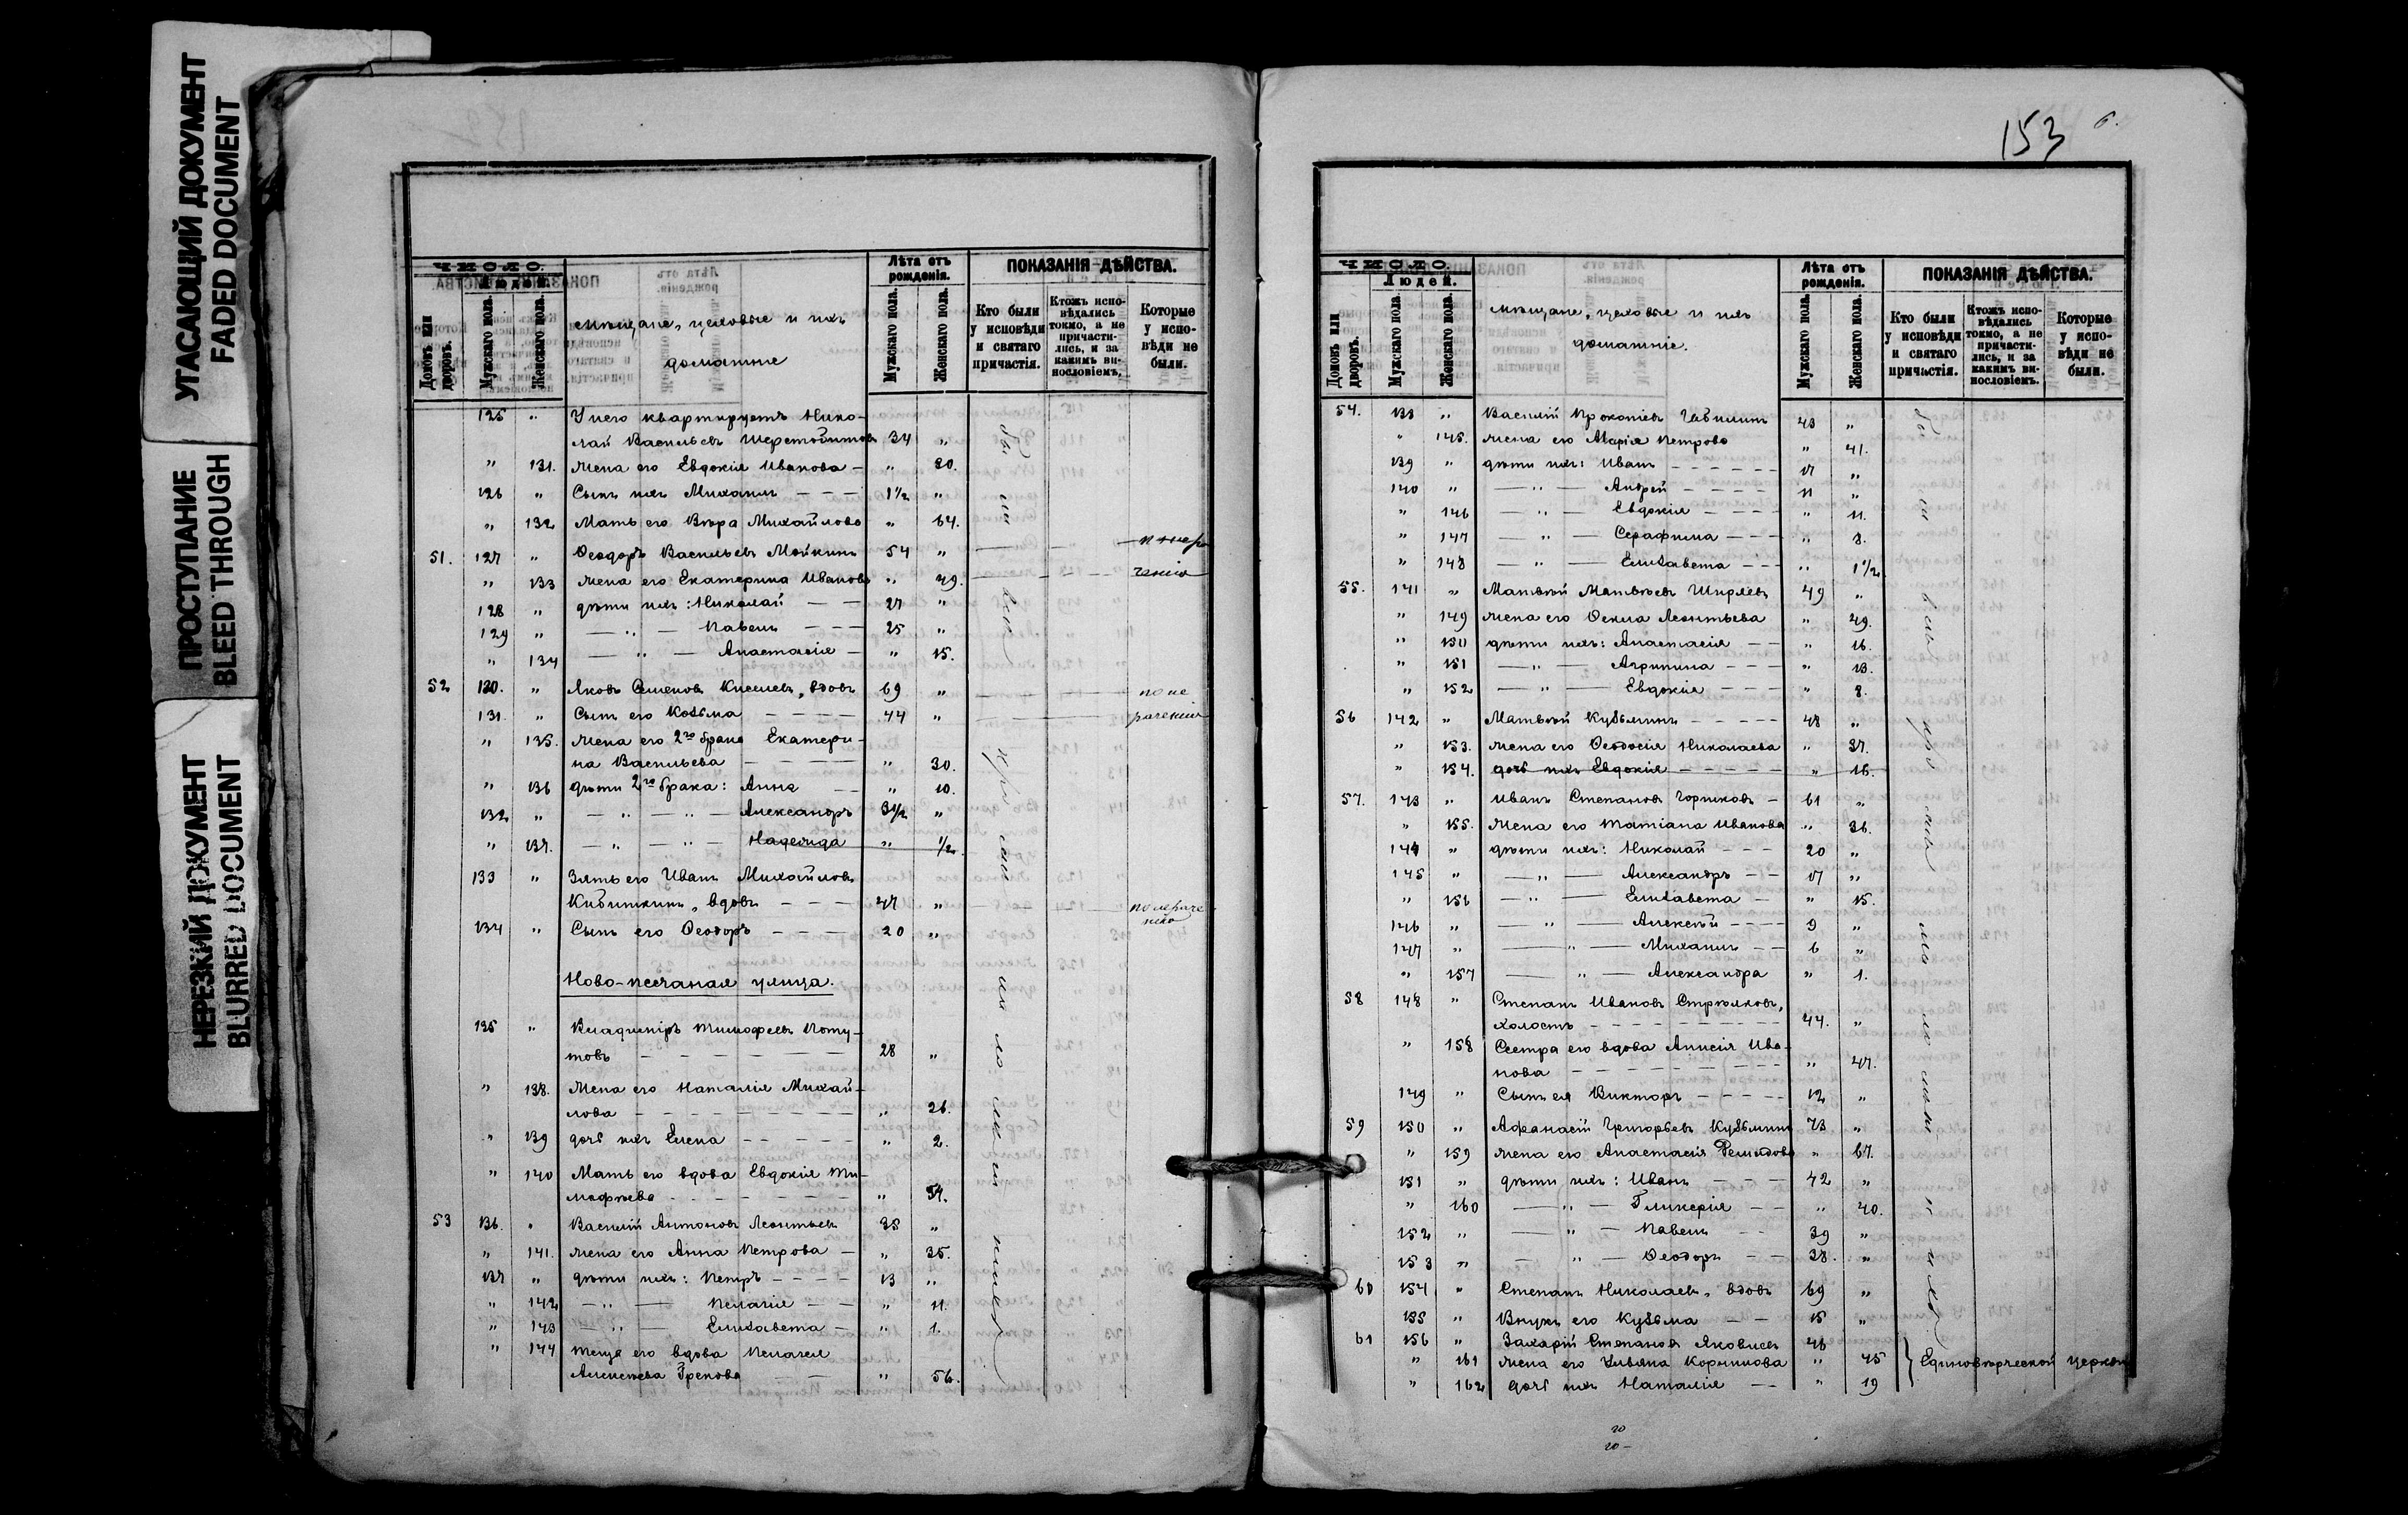 УГАСАЮЩИЙ ДОКУМЕНТ
FADED DOCUMENT
ПРОСТУПАНИЕ
BLEED THROUGH
НЕРЕЗКИЙ ДОКУМЕНТ
BLURRED DOCUMENT
ЧИСЛО.
Людей.
Домовъ или дворовъ.
Мужскаго пола.
Женскаго пола.
Мѣщане, цеховые и ихъ
домашніе
Лѣта отъ рожденія.
Мужскаго пола.
Женскаго пола.
ПОКАЗАНІЯ ДѢЙСТВА.
Кто были у исповѣди и святаго причастія.
Ктожъ исповѣдались токмо, а не причастились, и за какимъ винословіемъ.
Которые у исповѣди не были.
125 " У него квартируетъ Нико-
лай Васильевъ Шерстобитовъ 34 "
" 131. жена его Евдокія Иванова — " 30.
126 " Сынъ ихъ Михаилъ — — — 1½ "
" 132 Мать его Вѣра Михайлова " 64.
51. 127 " Ѳеодоръ Васильевъ Мойкинъ 54 "
" 133 жена его Екатерина Иванова " 49.
128 " дѣти ихъ: Николай — — 27 "
129 " — " — Павелъ — — — 25 "
" 134 — " — Анастасія — " 15.
52 130. " Яковъ Семеновъ Киселевъ, вдовъ 69 " по не
131. " Сынъ его Козьма — — — — 44 " раченію
" 135. жена его 2го брака Екатери-
на Васильева — — — — " 30.
" 136 дѣти 2го брака: Анна — — " 10.
132 " — " — " — Александръ 3½ "
" 137. — " — " — Надежда " ½
133 " Зять его Иванъ Михайловъ
Кибиткинъ, вдовъ — — — 47 "
134 " Сынъ его Ѳеодоръ — — — 20 "
Ново-песчаная улица.
135 " Владиміръ Тимофеевъ Полу-
товъ — — — — — — 28 "
" 138. жена его Наталія Михай-
лова — — — — — — " 26.
" 139 дочь ихъ Елена — — — — — " 2.
" 140 Мать его вдова Евдокія Ти-
мофѣева — — — — — — " 54.
53 136. " Василій Антоновъ Леонтьевъ 35 "
" 141. жена его Анна Петрова — " 35.
137 " дѣти ихъ: Петръ — — — — 13 "
" 142 — " — Пелагія — — " 11.
" 143 — " — Елизавета — " 1.
" 144 теща его вдова Пелагея
Алексѣева Грекова — — " 56.
153
ЧИСЛО.
Людей.
Домовъ или дворовъ.
Мужскаго пола.
Женскаго пола.
Мѣщане, цеховые и ихъ
домашніе.
Лѣта отъ рожденія.
Мужскаго пола.
Женскаго пола.
ПОКАЗАНІЯ ДѢЙСТВА.
Кто были у исповѣди и святаго причастія.
Ктожъ исповѣдались токмо, а не причастились, и за какимъ винословіемъ.
Которые у исповѣди не были.
54. 138 " Василій Прокопіевъ 43 "
" 145. жена его Марія Петрова " 41.
139 " дѣти ихъ: Иванъ — — — — — 17 "
140 " — " — Андрей — — — — 11 "
" 146 — " — Евдокія — — — — " 11.
" 147 — " — Серафима — — — " 8.
" 148 — " — Елизавета — — — " 1½
55. 141 " Матвѣй Матвѣевъ Ширяевъ 49 "
" 149 жена его Ѳекла Леонтьева " 49.
" 150 дѣти ихъ: Анастасія — " 16.
" 151 — " — Агрипина — — — " 13.
" 152 — " — Евдокія — — — " 8.
56 142 " Матвѣй Кузьминъ — — — — — 48 "
" 153. жена его Ѳеодосія Николаева " 37.
" 154. дочь ихъ Евдокія — — — — — " 16.
57. 143 " Иванъ Степановъ Горшковъ — 61 "
" 155. жена его Татіана Иванова " 36.
144 " дѣти ихъ: Николай — — — 20 "
145 " — " — Александръ — — 17 "
" 156 — " — Елизавета — " 15.
146 " — " — Алексѣй — — — — 9 "
147 " — " — Михаилъ — — 6 "
" 157 — " — Александра " 1.
58 148 " Степанъ Ивановъ Стрѣлковъ,
холостъ — — — — — — — 44. "
" 158 Сестра его вдова Анисія Ива-
нова — — — — — — — — " 47.
149 " Сынъ ея Викторъ — — — — — 12 "
59 150 " Аѳанасій Григорьевъ Кузьминъ 73 "
" 159 жена его Анастасія Демидова " 67.
151 " дѣти ихъ: Иванъ — — — 42 "
" 160 — " — Гликерія — — " 40.
152 " — " — Павелъ — — 39 "
153 " — " — Ѳеодоръ — — 38. "
60 154 " Степанъ Николаевъ, вдовъ 69 "
155 " Внукъ его Кузьма — — 15 "
61 156 " Захарій Степановъ Яковлевъ 46
" 161 жена его Ульяна Корнилова " 45 Единовѣрческой церкви
" 162 дочь ихъ Наталія — — " 19